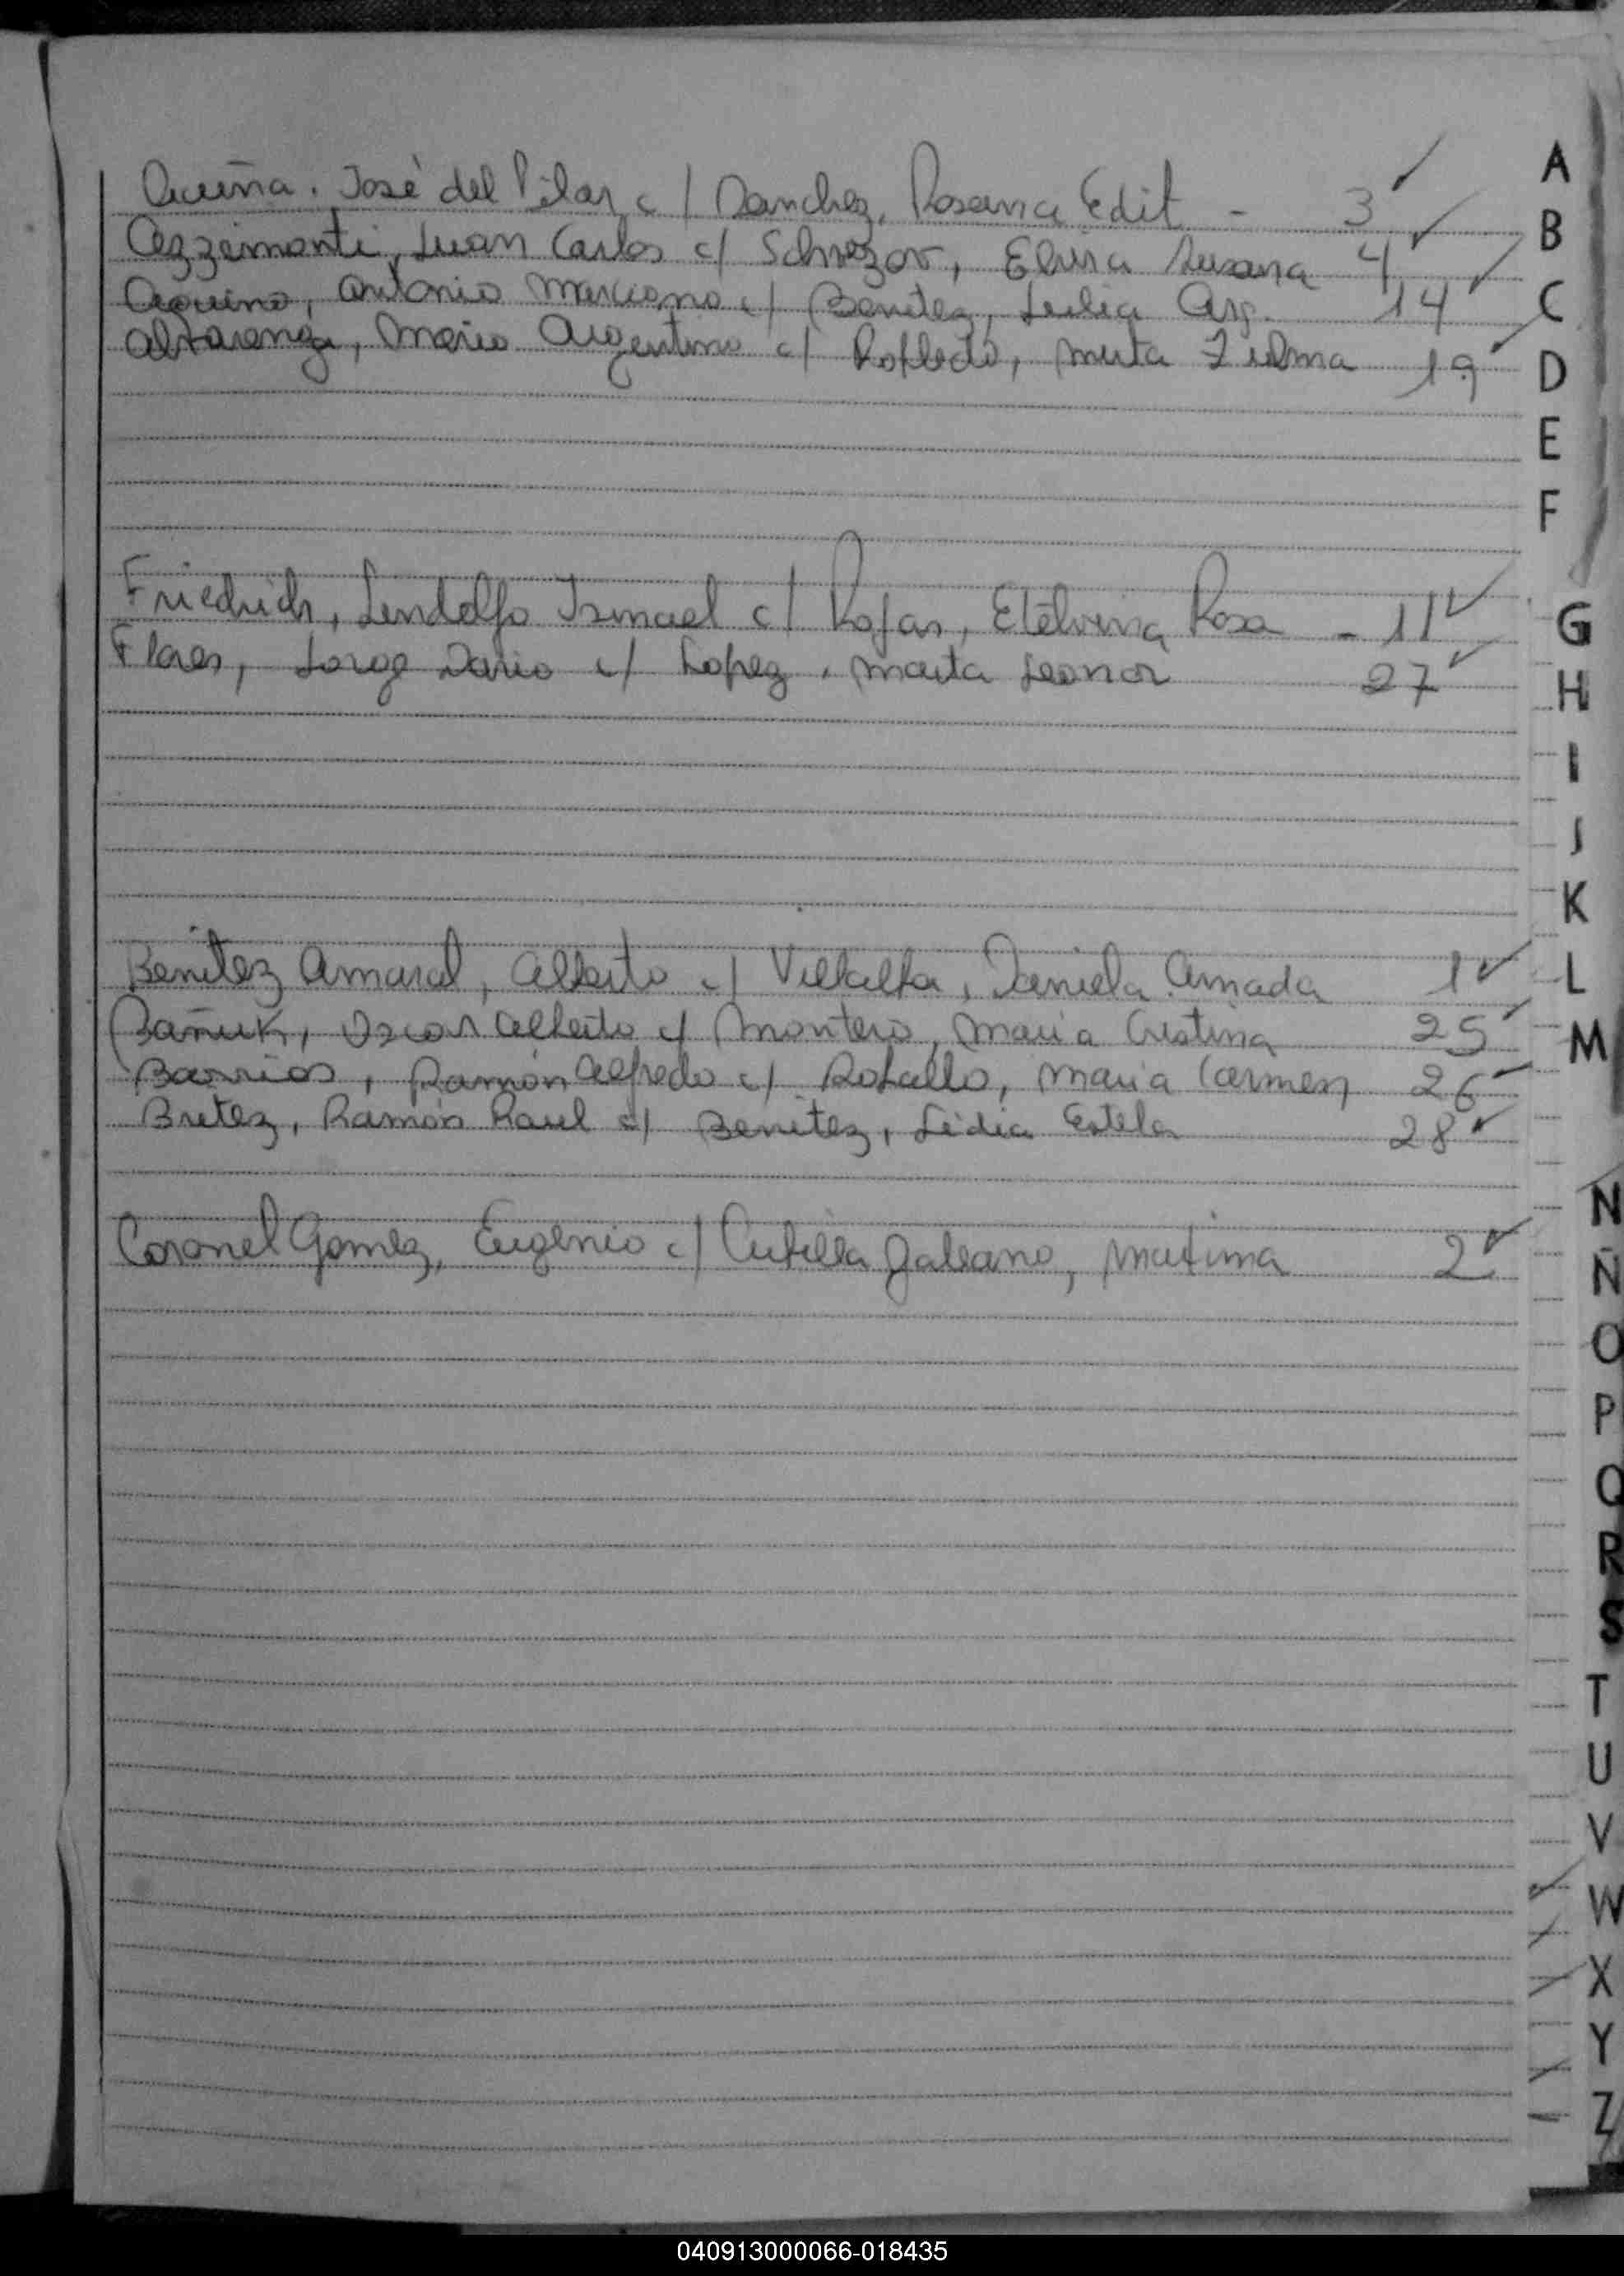 Acuña. José del Pilar c/ Sanchez, Rosana Edit - 3
Azzimonti, Juan Carlos c/ Schvezov, Elvira Susana 4
Aquino, Antonio Marciano c/ Benitez, Julia Arg. 14
Altarenga, Mario Argentino c/ Robledo, Mirta Zulma 19
Friedrich, Lindolfo Ismael c/ Rojas, Etelvina Rosa - 11
Flores, Jorge Dario c/ Lopez, Marta Leonor 27
Benitez Amaral, Alberto c/ Villalba, Daniela Amada 1
Bañuk, Oscar Alberto c/ Montero, Maria Cristina 25
Barrios, Ramón Alfredo c/ Maria Carmen 26
Britez, Ramón Raul c/ Benitez, Lidia Estela 28
Coronel Gomez, Eugenio c/ Cubilla Galeano, Maxima 2
A
B
C
D
E
F
G
H
I
J
K
L
M
N
Ñ
O
P
Q
R
S
T
U
V
W
X
Y
Z
040913000066-018435